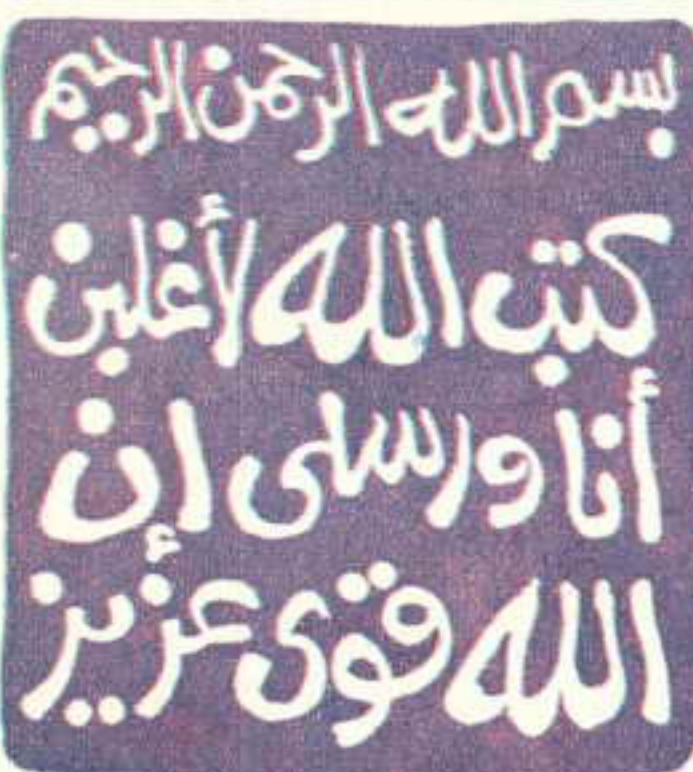 بسم الله الرحمن الرحيم
كتب الله لأغلبن
أنا ورسلى إن
الله قوى عزيز